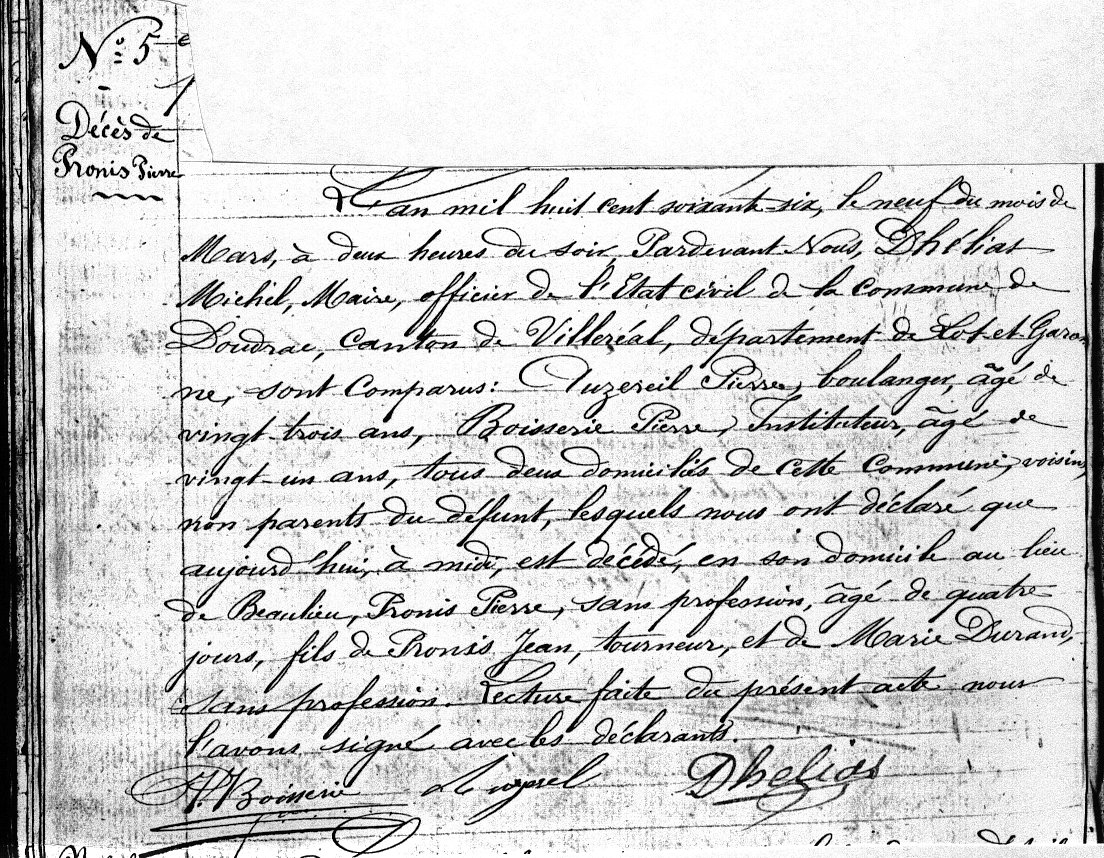 N° 5
Décès de
Pronis Pierre
L'an mil huit cent soixante-six, le neuf du mois de
Mars, à deux heures du soir, Pardevant Nous, Dhélias
Michel, Maire, officier de l'Etat civil de la Commune de
Doudrac, Canton de Villeréal, département de Lot et Garon
ne, sont Comparus: Auzereil Pierre, boulanger, âgé de
vingt trois ans, Boisserie Pierre, Instituteur, âgé de
vingt-un ans, tous deux domiciliés de cette Commune, voisins,
non parents du défunt, lesquels nous ont déclaré que
aujourd'hui, à midi, est décédé, en son domicile au lieu
de Beaulieu, Pronis Pierre, sans profession, âgé de quatre
jours, fils de Pronis Jean, tourneur, et de Marie Durand,
sans profession. Lecture faite du présent acte nous
l'avons signé avec les déclarants.
P. Boisserie Dhelias